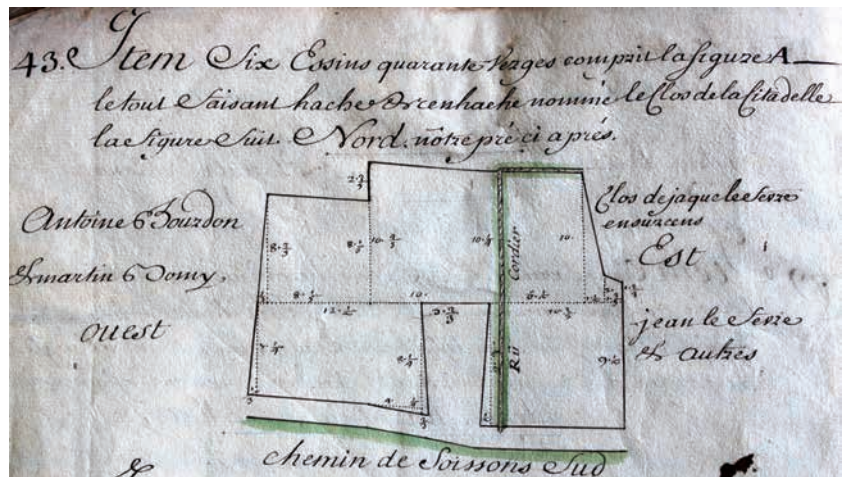 43.e Item Six Essins quarante Verges comprit la figure A
le tout faisant hache & renhache nommé le Clos de la Citadelle
la figure suit. Nord. nôtre pré ci aprés.
Antoine Bourdon
& martin Domy
ouest
Clos de jaque le serre
en surcens
Est
jean le serre
& autres
Cordier
Rû
2 · 2/3
8 · 2/3
8 · 1/2
10 · 2/3
10 · 1/2
10 ·
8 · 1/2
12 · 1/2
10 ·
6 · 1/2
chemin de Soissons Sud